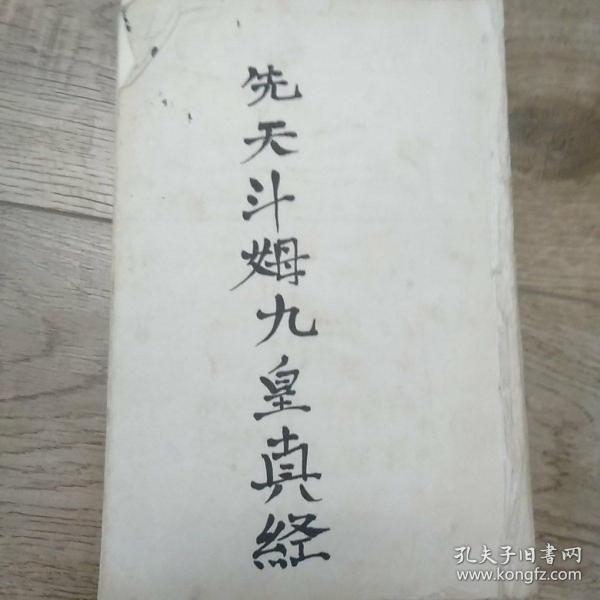 先天斗姆九皇真経
孔夫子旧書网
www.kongfz.com